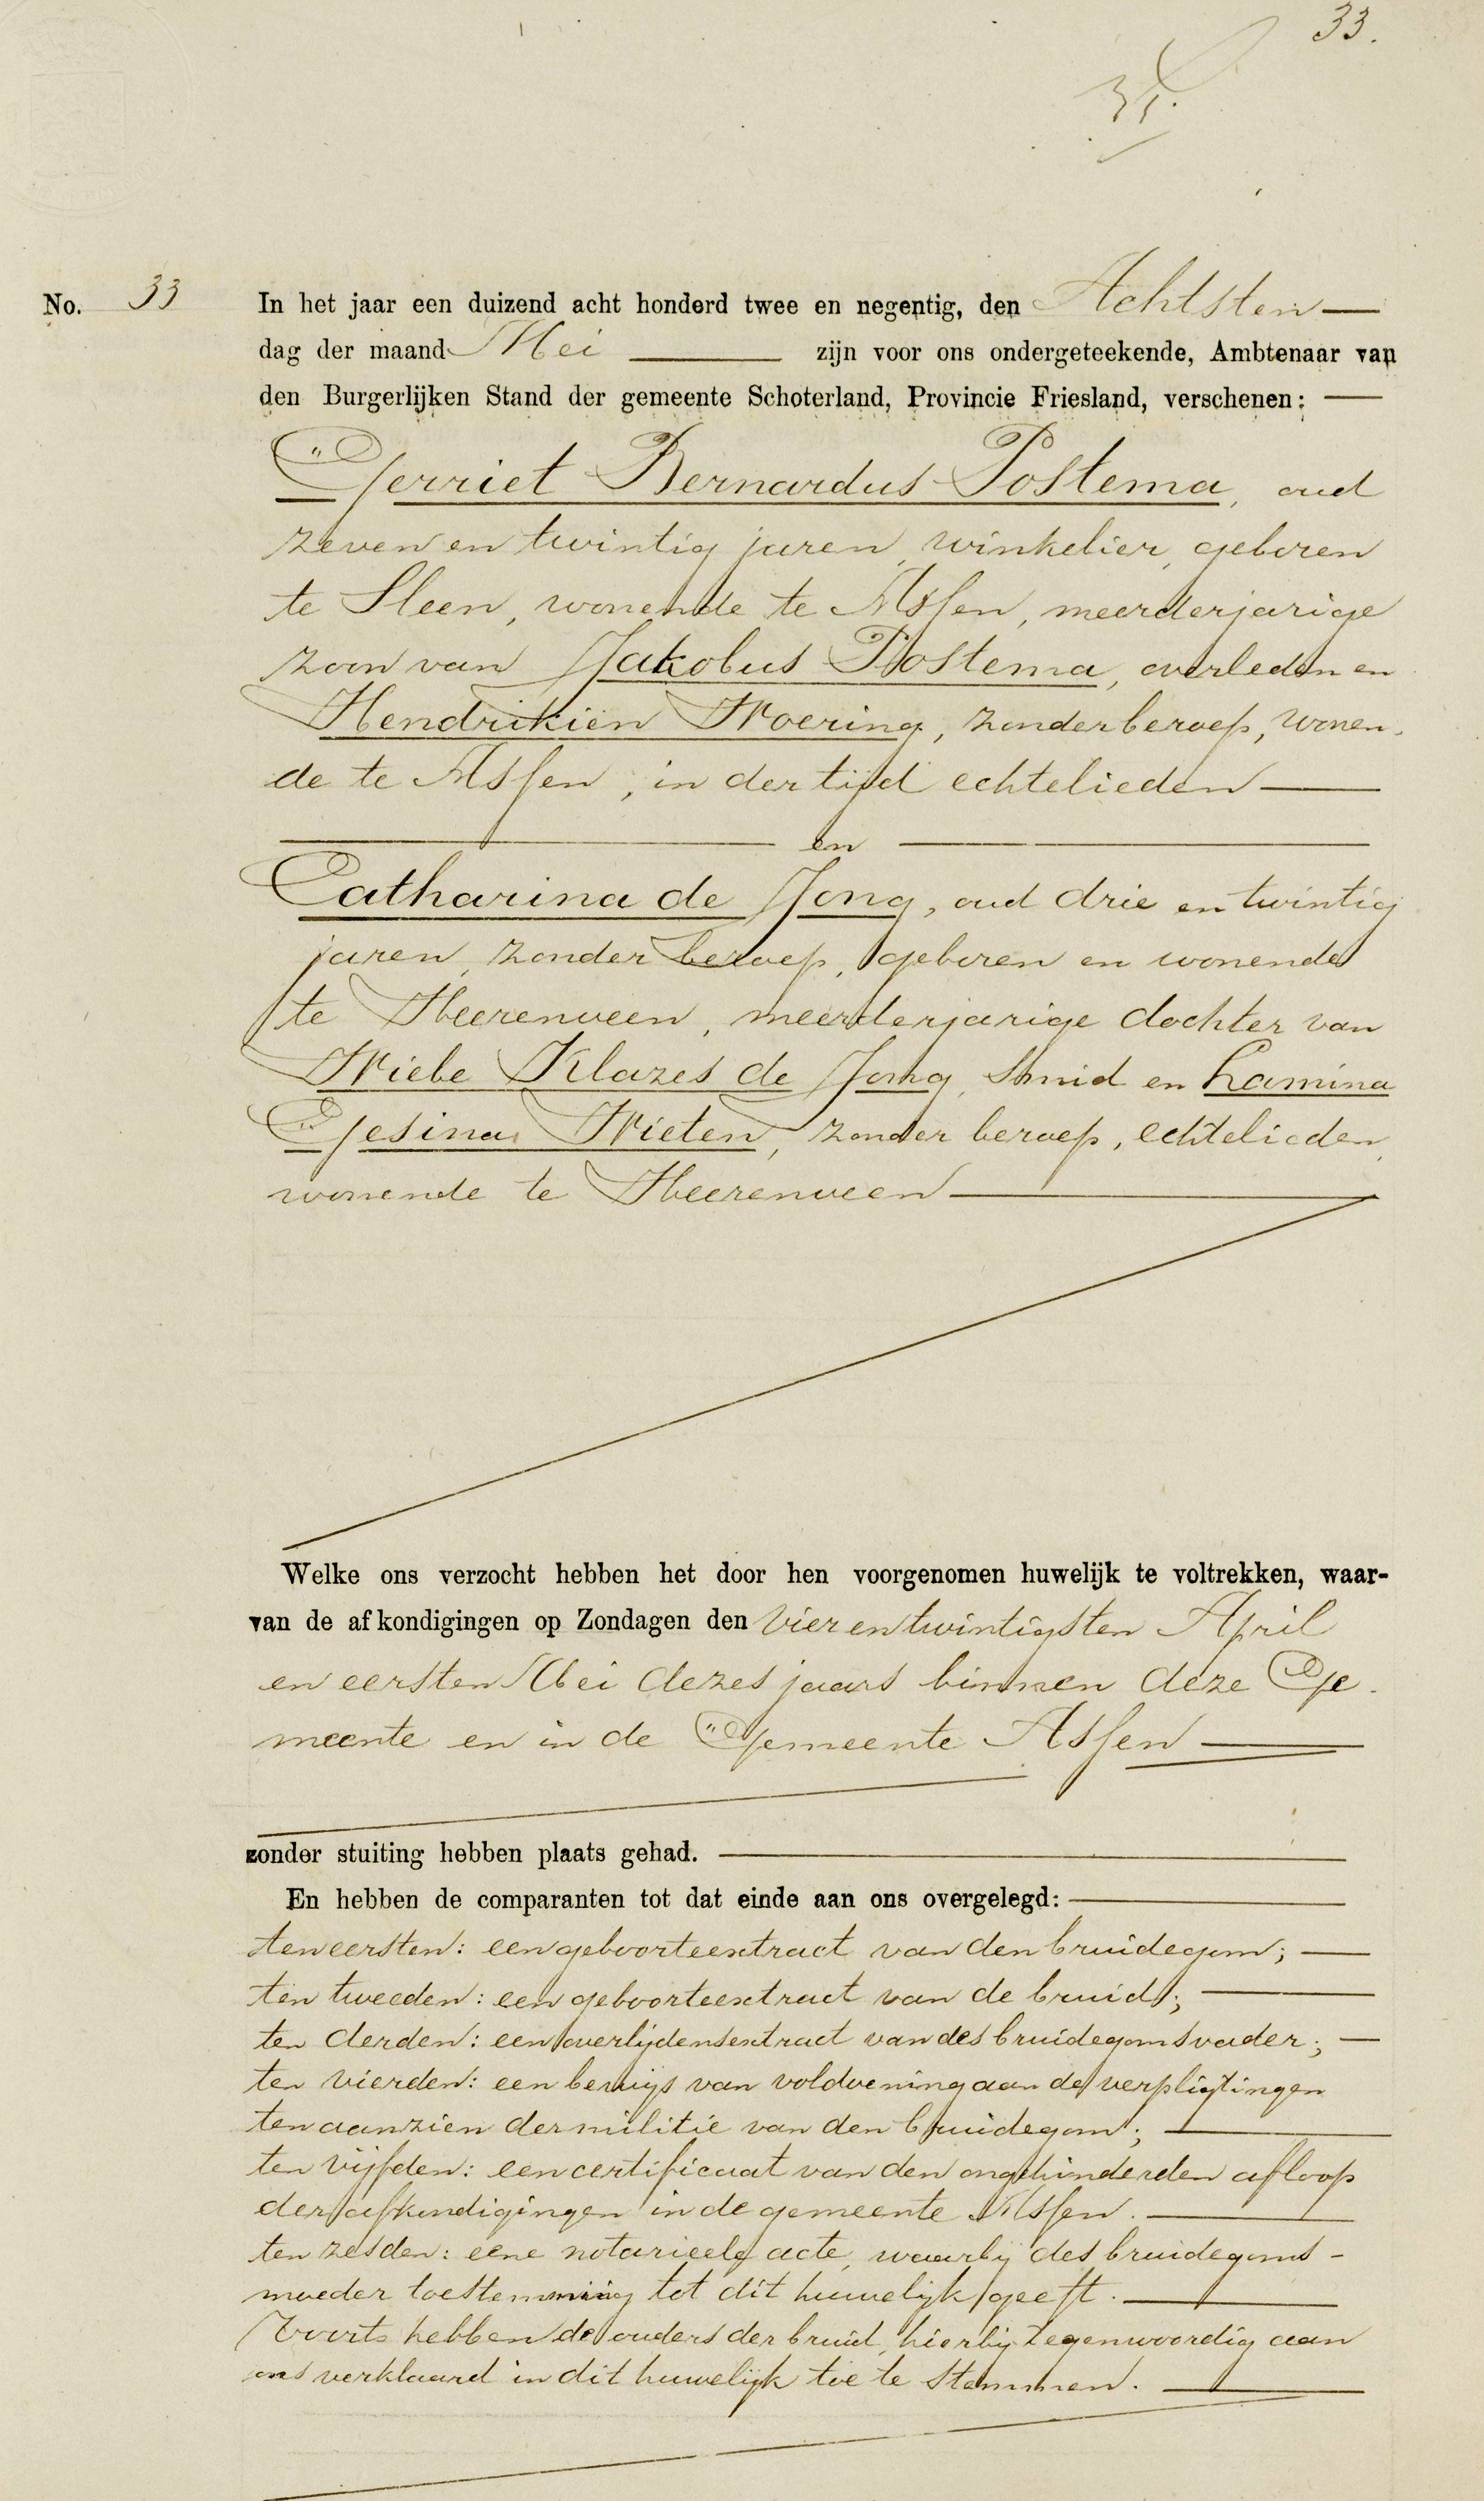 33.
No. 33
In het jaar een duizend acht honderd twee en negentig, den Achtsten
dag der maand Mei zijn voor ons ondergeteekende, Ambtenaar van
den Burgerlijken Stand der gemeente Schoterland, Provincie Friesland, verschenen:
Gerriet Bernardus Postema, oud
zeven en twintig jaren, winkelier, geboren
te Sleen, wonende te Assen, meerderjarige
zoon van Jakobus Postema, overleden en
Hendrikien Woering, zonder beroep, wonen-
de te Assen, in der tijd echtelieden
en
Catharina de Jong, oud drie en twintig
jaren, zonder beroep, geboren en wonende
te Heerenveen, meerderjarige dochter van
Wiebe Klazes de Jong, Smid en Lamina
Gesina Wieten, zonder beroep, echtelieden,
wonende te Heerenveen
Welke ons verzocht hebben het door hen voorgenomen huwelijk te voltrekken, waar-
van de afkondigingen op Zondagen den vier en twintigsten April
en eersten Mei dezes jaars binnen deze Ge-
meente en in de Gemeente Assen
zonder stuiting hebben plaats gehad.
En hebben de comparanten tot dat einde aan ons overgelegd:
ten eersten: een geboorteextract van den bruidegom;
ten tweeden: een geboorteextract van de bruid;
ten derden: een overlijdensextract van des bruidegoms vader;
ten vierden: een bewijs van voldoening aan de verpligtingen
ten aanzien der militie van den bruidegom;
ten vijfden: een certificaat van den ongehinderden afloop
der afkondigingen in de gemeente Assen.
ten zesden: eene notarieele acte, waarbij des bruidegoms-
moeder toestemming tot dit huwelijk geeft.
Voorts hebben de ouders der bruid, hierbij tegenwoordig aan
ons verklaard in dit huwelijk toe te stemmen.